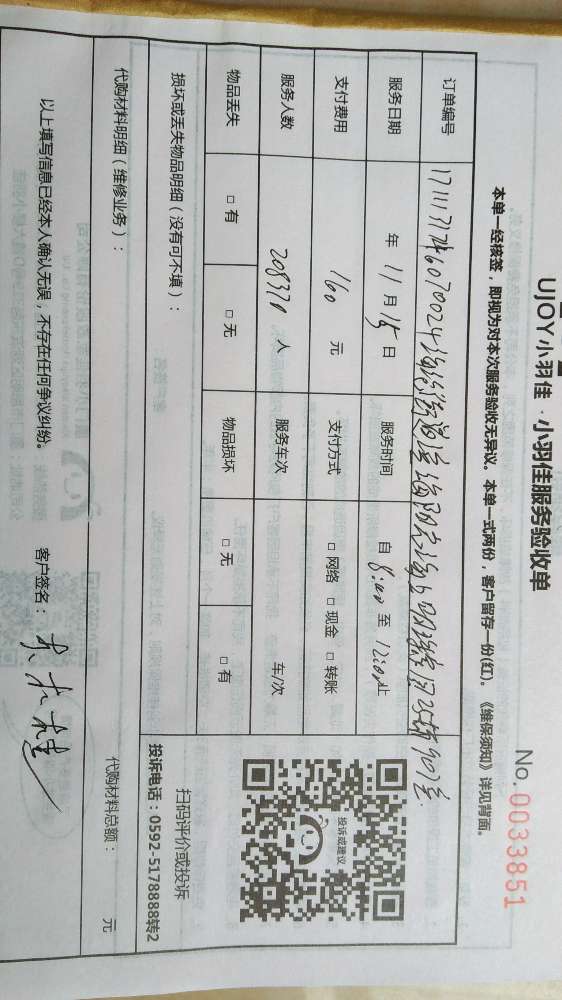 UJOY小羽佳·小羽佳服务验收单
No. 0033851
本单一经核签，即视为对本次服务验收无异议。本单一式两份，客户留存一份(红)。《维保须知》详见背面。
订单编号
服务日期 年 11 月 15 日 服务时间 自 8:00 至 12:00 止
支付费用 160 元 支付方式 □ 网络 □ 现金 □ 转账
服务人数 208370 人 服务车次 车/次
物品丢失 □ 有 □ 无 物品损坏 □ 无 □ 有
投诉或建议
扫码评价或投诉
投诉电话：0592-5178888转2
损坏或丢失物品明细（没有可不填）：
代购材料明细（维修业务）： 代购材料总额： 元
以上填写信息已经本人确认无误，不存在任何争议纠纷。 客户签名：